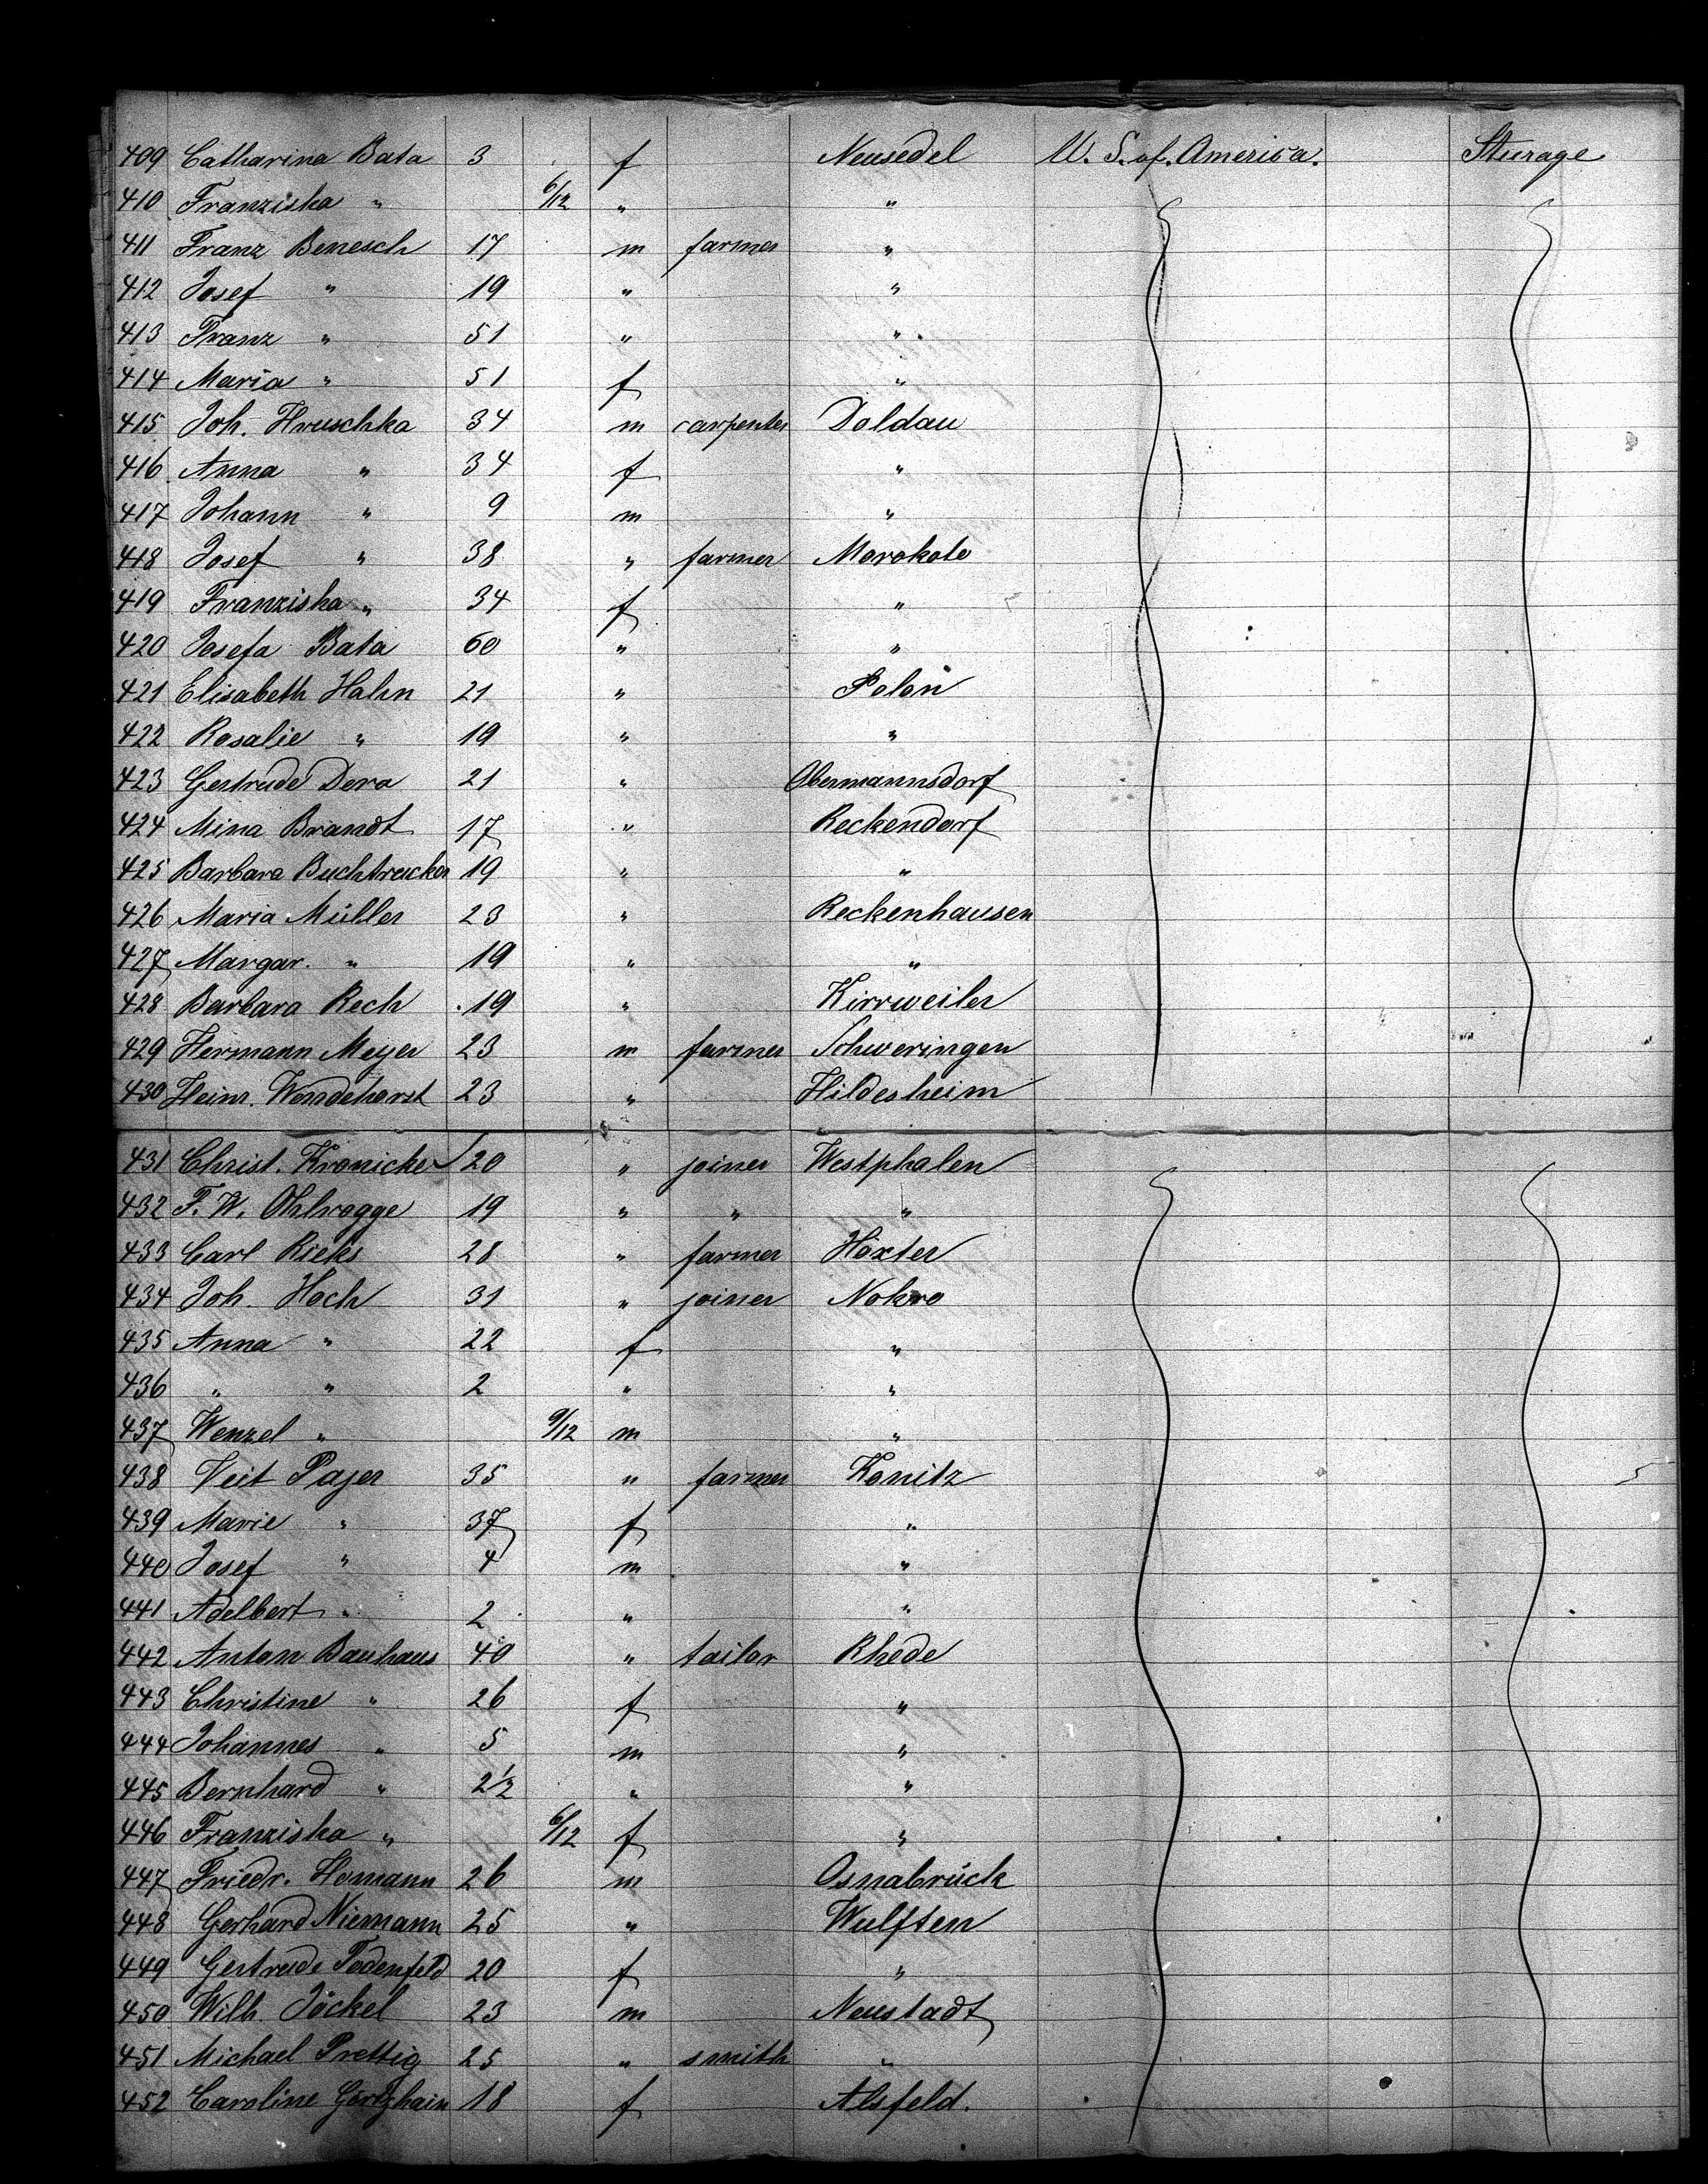 409 Catharina Bata 3 f Neusedel U. S. of America. Steerage
410 Franziska " 6/12 " "
411 Franz Benesch 17 m farmer "
412 Josef " 19 " "
413 Franz " 51 " "
414 Maria " 51 f "
415 Joh. Hruschka 34 m carpenter Doldau
416 Anna " 34 f "
417 Johann " 9 m "
418 Josef " 38 " farmer Morokole
419 Franziska " 34 f "
420 Josefa Bata 60 " "
421 Elisabeth Hahn 21 " Polon
422 Rosalie " 19 " "
423 Gertrude Dera 21 " Obermannsdorf
424 Mina Brandt 17 " Reckendorf
425 Barbara Buchtrucker 19 " "
426 Maria Müller 23 " Reckenhausen
427 Margar. " 19 " "
428 Barbara Rech 19 " Kirrweiler
429 Hermann Meyer 23 m farmer Schweringen
430 Heinr. Wendehorst 23 " Hildesheim
431 Christ. Kronicker 20 " joiner Westphalen
432 F. W. Ohlrogge 19 " " "
433 Carl Rieks 28 " farmer Höxter
434 Joh. Hoch 31 " joiner Nokro
435 Anna " 22 f "
436 " " 2 " "
437 Wenzel " 9/12 m "
438 Veit Pajer 35 " farmer Konitz
439 Marie " 37 f "
440 Josef " 4 m "
441 Adelbert " 2 " "
442 Anton Bauhaus 40 " tailor Rhede
443 Christine " 26 f "
444 Johannes " 5 m "
445 Bernhard " 2 1/2 " "
446 Franziska " 6/12 f "
447 Friedr. Homann 26 m Osnabrück
448 Gerhard Niemann 25 " Wulften
449 Gertrude Todenfeld 20 f "
450 Wilh Jöckel 23 m Neustadt
451 Michael Prettig 25 " smith "
452 Caroline Görtzhain 18 f Alsfeld.